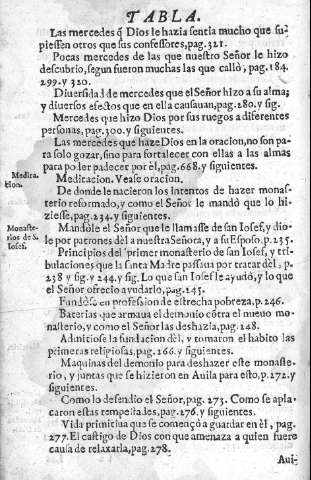 TABLA.
Las mercedes q̃ Dios le hazia sentia mucho que su-
piessen otros que sus confessores, pag. 321.
Pocas mercedes de las que nuestro Señor le hizo
descubrio, segun fueron muchas las que callò, pag. 184.
299. y 320.
Diuersidad de mercedes que el Señor hizo a su alma;
y diuersos efectos que en ella causauan, pag. 280. y sig.
Mercedes que hizo Dios por sus ruegos a diferentes
personas, pag. 300. y siguientes.
Las mercedes que haze Dios en la oracion, no son pa-
ra solo gozar, sino para fortalecer con ellas a las almas
para poder padecer por èl, pag. 668. y siguientes.
Medita-
cion.
Meditacion. Vease oracion.
De donde le nacieron los intentos de hazer monas-
terio reformado, y como el Señor le mandò que lo hi-
ziesse, pag. 234. y siguientes.
Monaste-
rios de S.
Iosef.
Mandòle el Señor que le llamasse de san Iosef, y dio-
le por patrones dèl a nuestra Señora, y a su Esposo. p. 235.
Principios del primer monasterio de san Iosef, y tri-
bulaciones que la santa Madre passaua por tratar dèl, p.
238 y sig. y 244. y sig. Lo que san Iosef le ayudò, y lo que
el Señor ofrecio ayudarlo, pag. 245.
Fundòse en profession de estrecha pobreza, p. 246.
Baterias que armaua el demonio côtra el nueuo mo-
nasterio, y como el Señor las deshazia, pag. 248.
Admitiose la fundacion dèl, y tomaron el habito las
primeras religiosas, pag. 266. y siguientes.
Maquinas del demonio para deshazer este monaste-
rio, y juntas que se hizieron en Auila para esto, p. 272. y
siguientes.
Como lo defendio el Señor, pag. 273. Como se apla-
caron estas tempestades, pag. 276. y siguientes.
Vida primitiua que se començò a guardar en èl, pag.
277. El castigo de Dios con que amenaza a quien fuere
causa de relaxarla, pag. 278.
Aui-